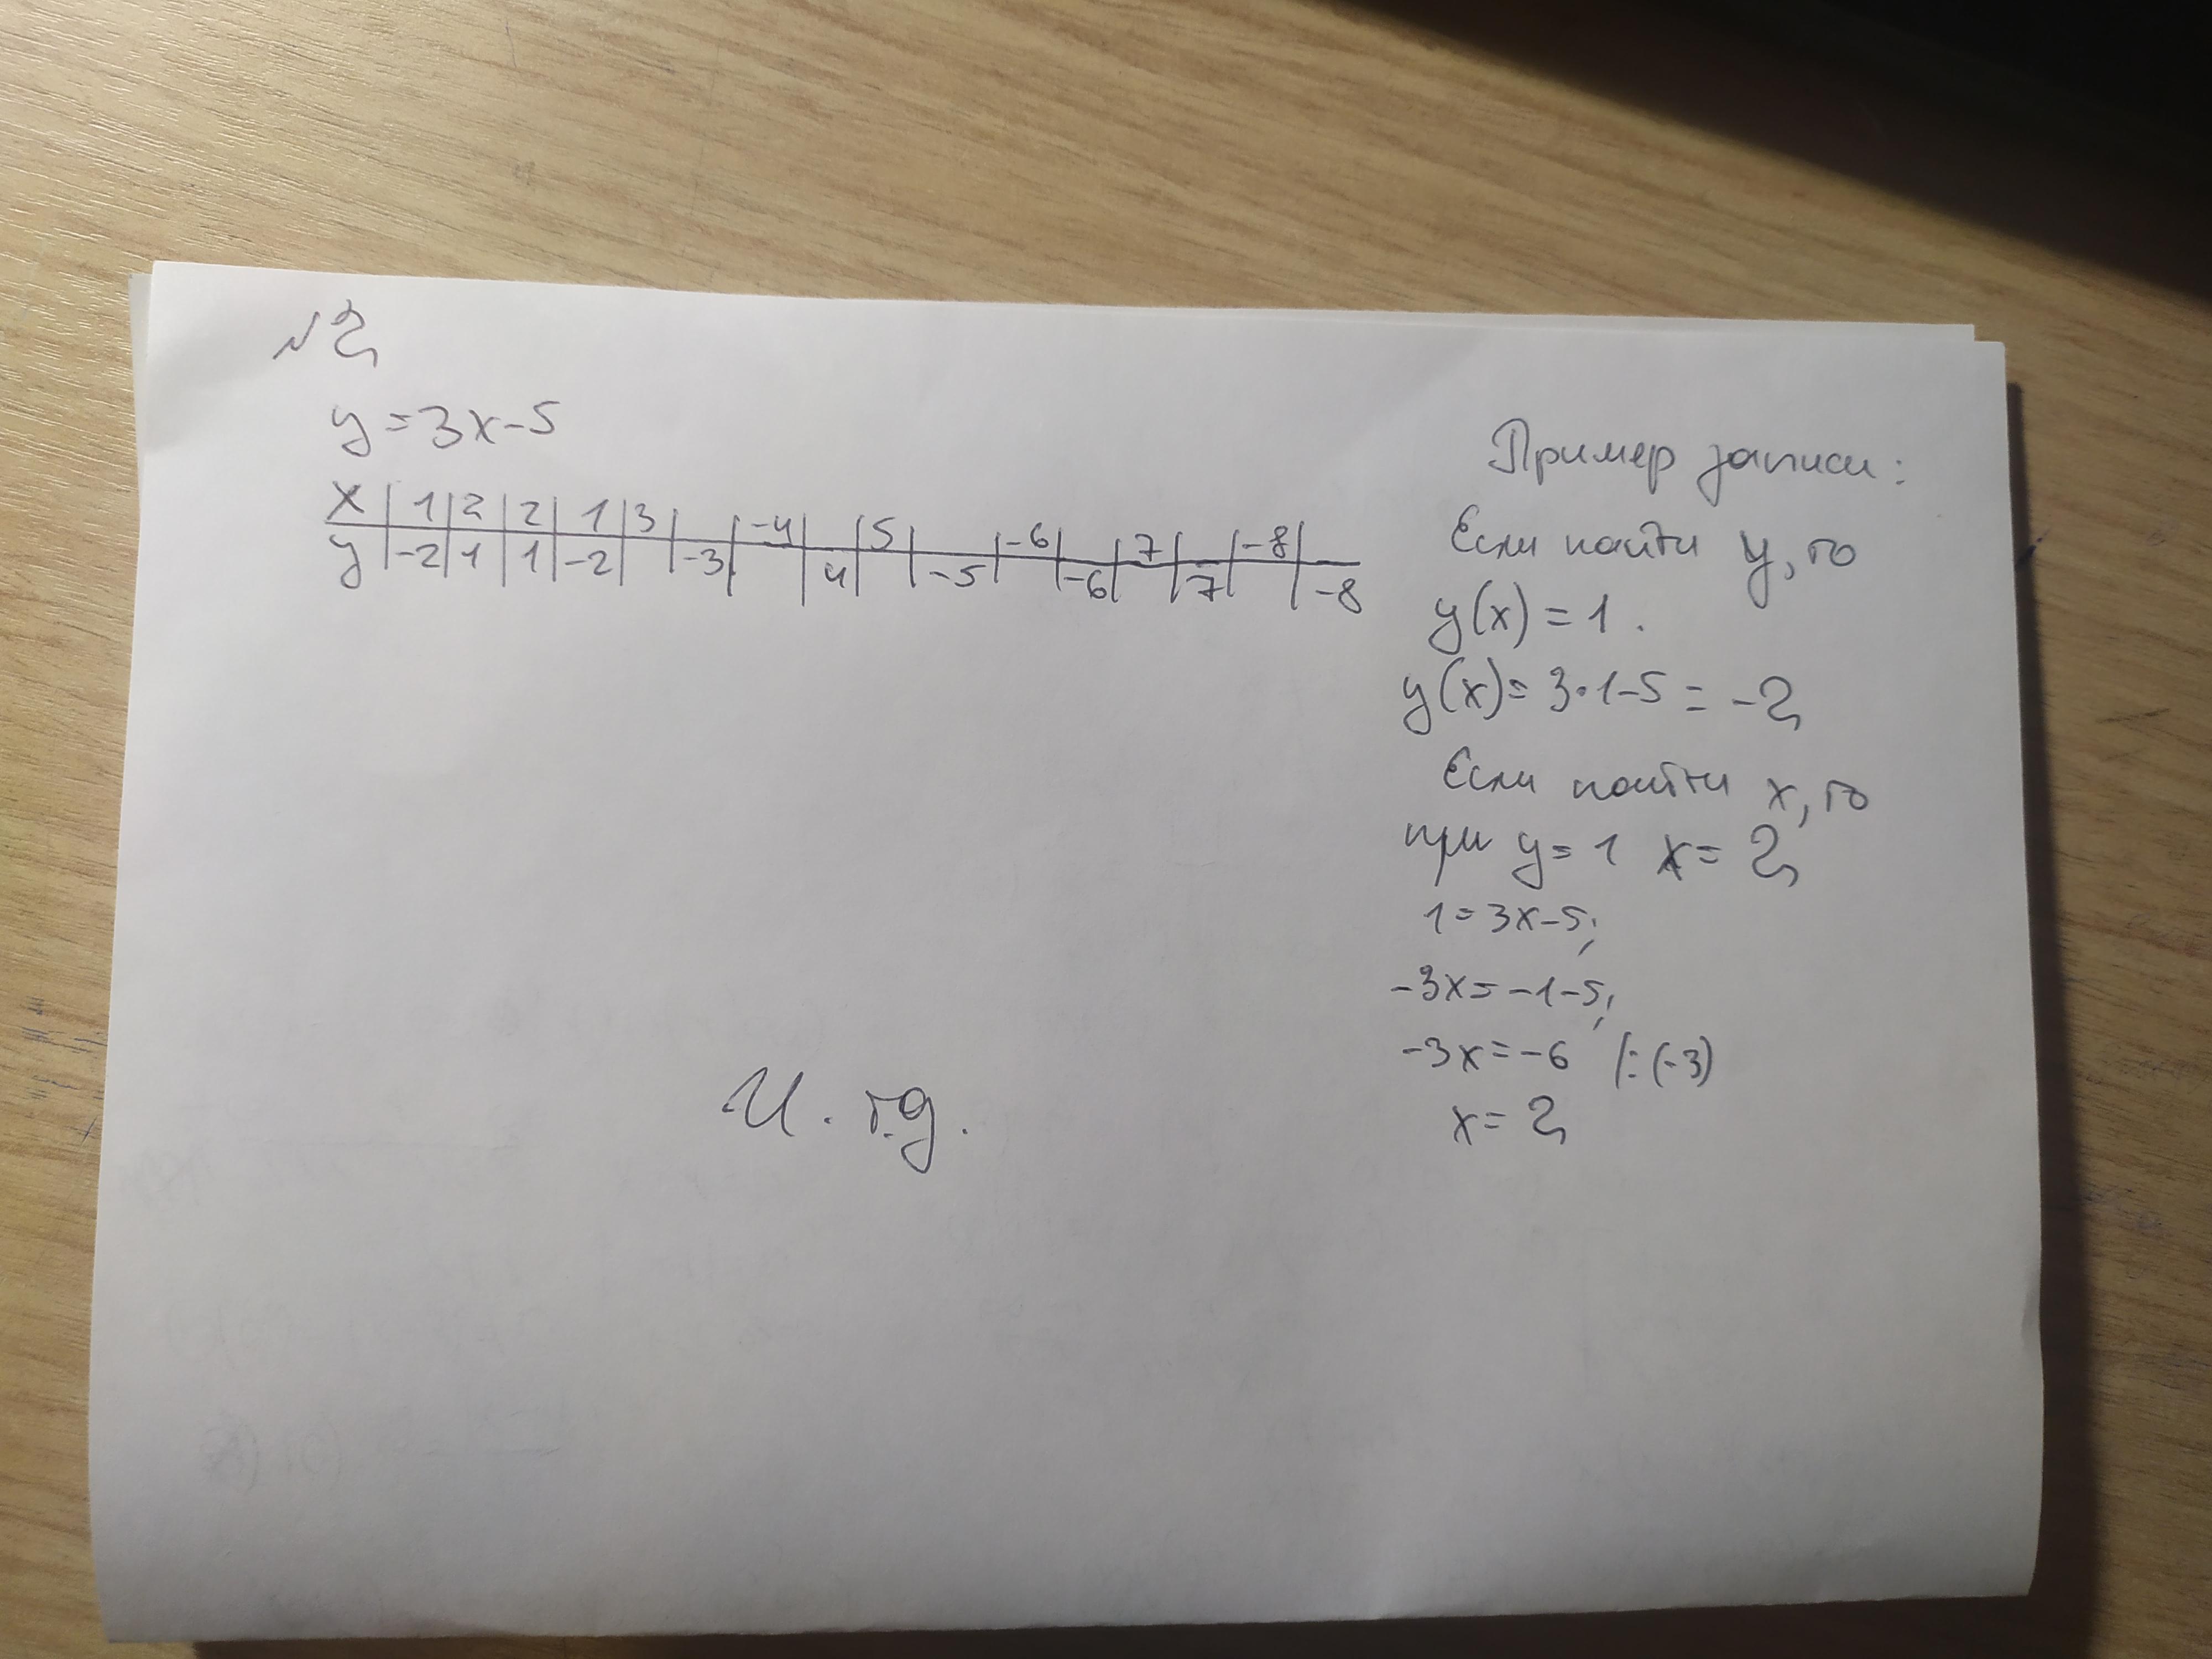 №2
y=3x-5
x | 1 | 2 | 2 | 1 | 3 | | -4 | | 5 | | -6 | | 7 | | -8 |
y | -2 | 1 | 1 | -2 | | -3 | | 4 | | -5 | | -6 | | 7 | | -8
Пример записи:
Если найти y, то
y(x)=1.
y(x)=3·1-5=-2
Если найти x, то
при y=1 x=2
1=3x-5;
-3x=-1-5;
-3x=-6 |:(-3)
x=2
И. т.д.